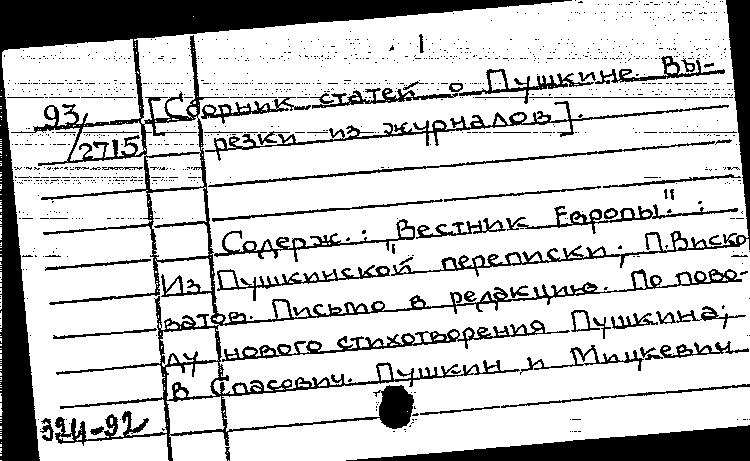 1
93/2715 [Сборник статей о Пушкине. Вы-
резки из журналов].
Содерж.: „Вестник Европы":
Из Пушкинской переписки; П. Виско
ватов. Письмо в редакцию. По пово-
ду нового стихотворения Пушкина;
В Спасович. Пушкин и Мицкевич
324-92